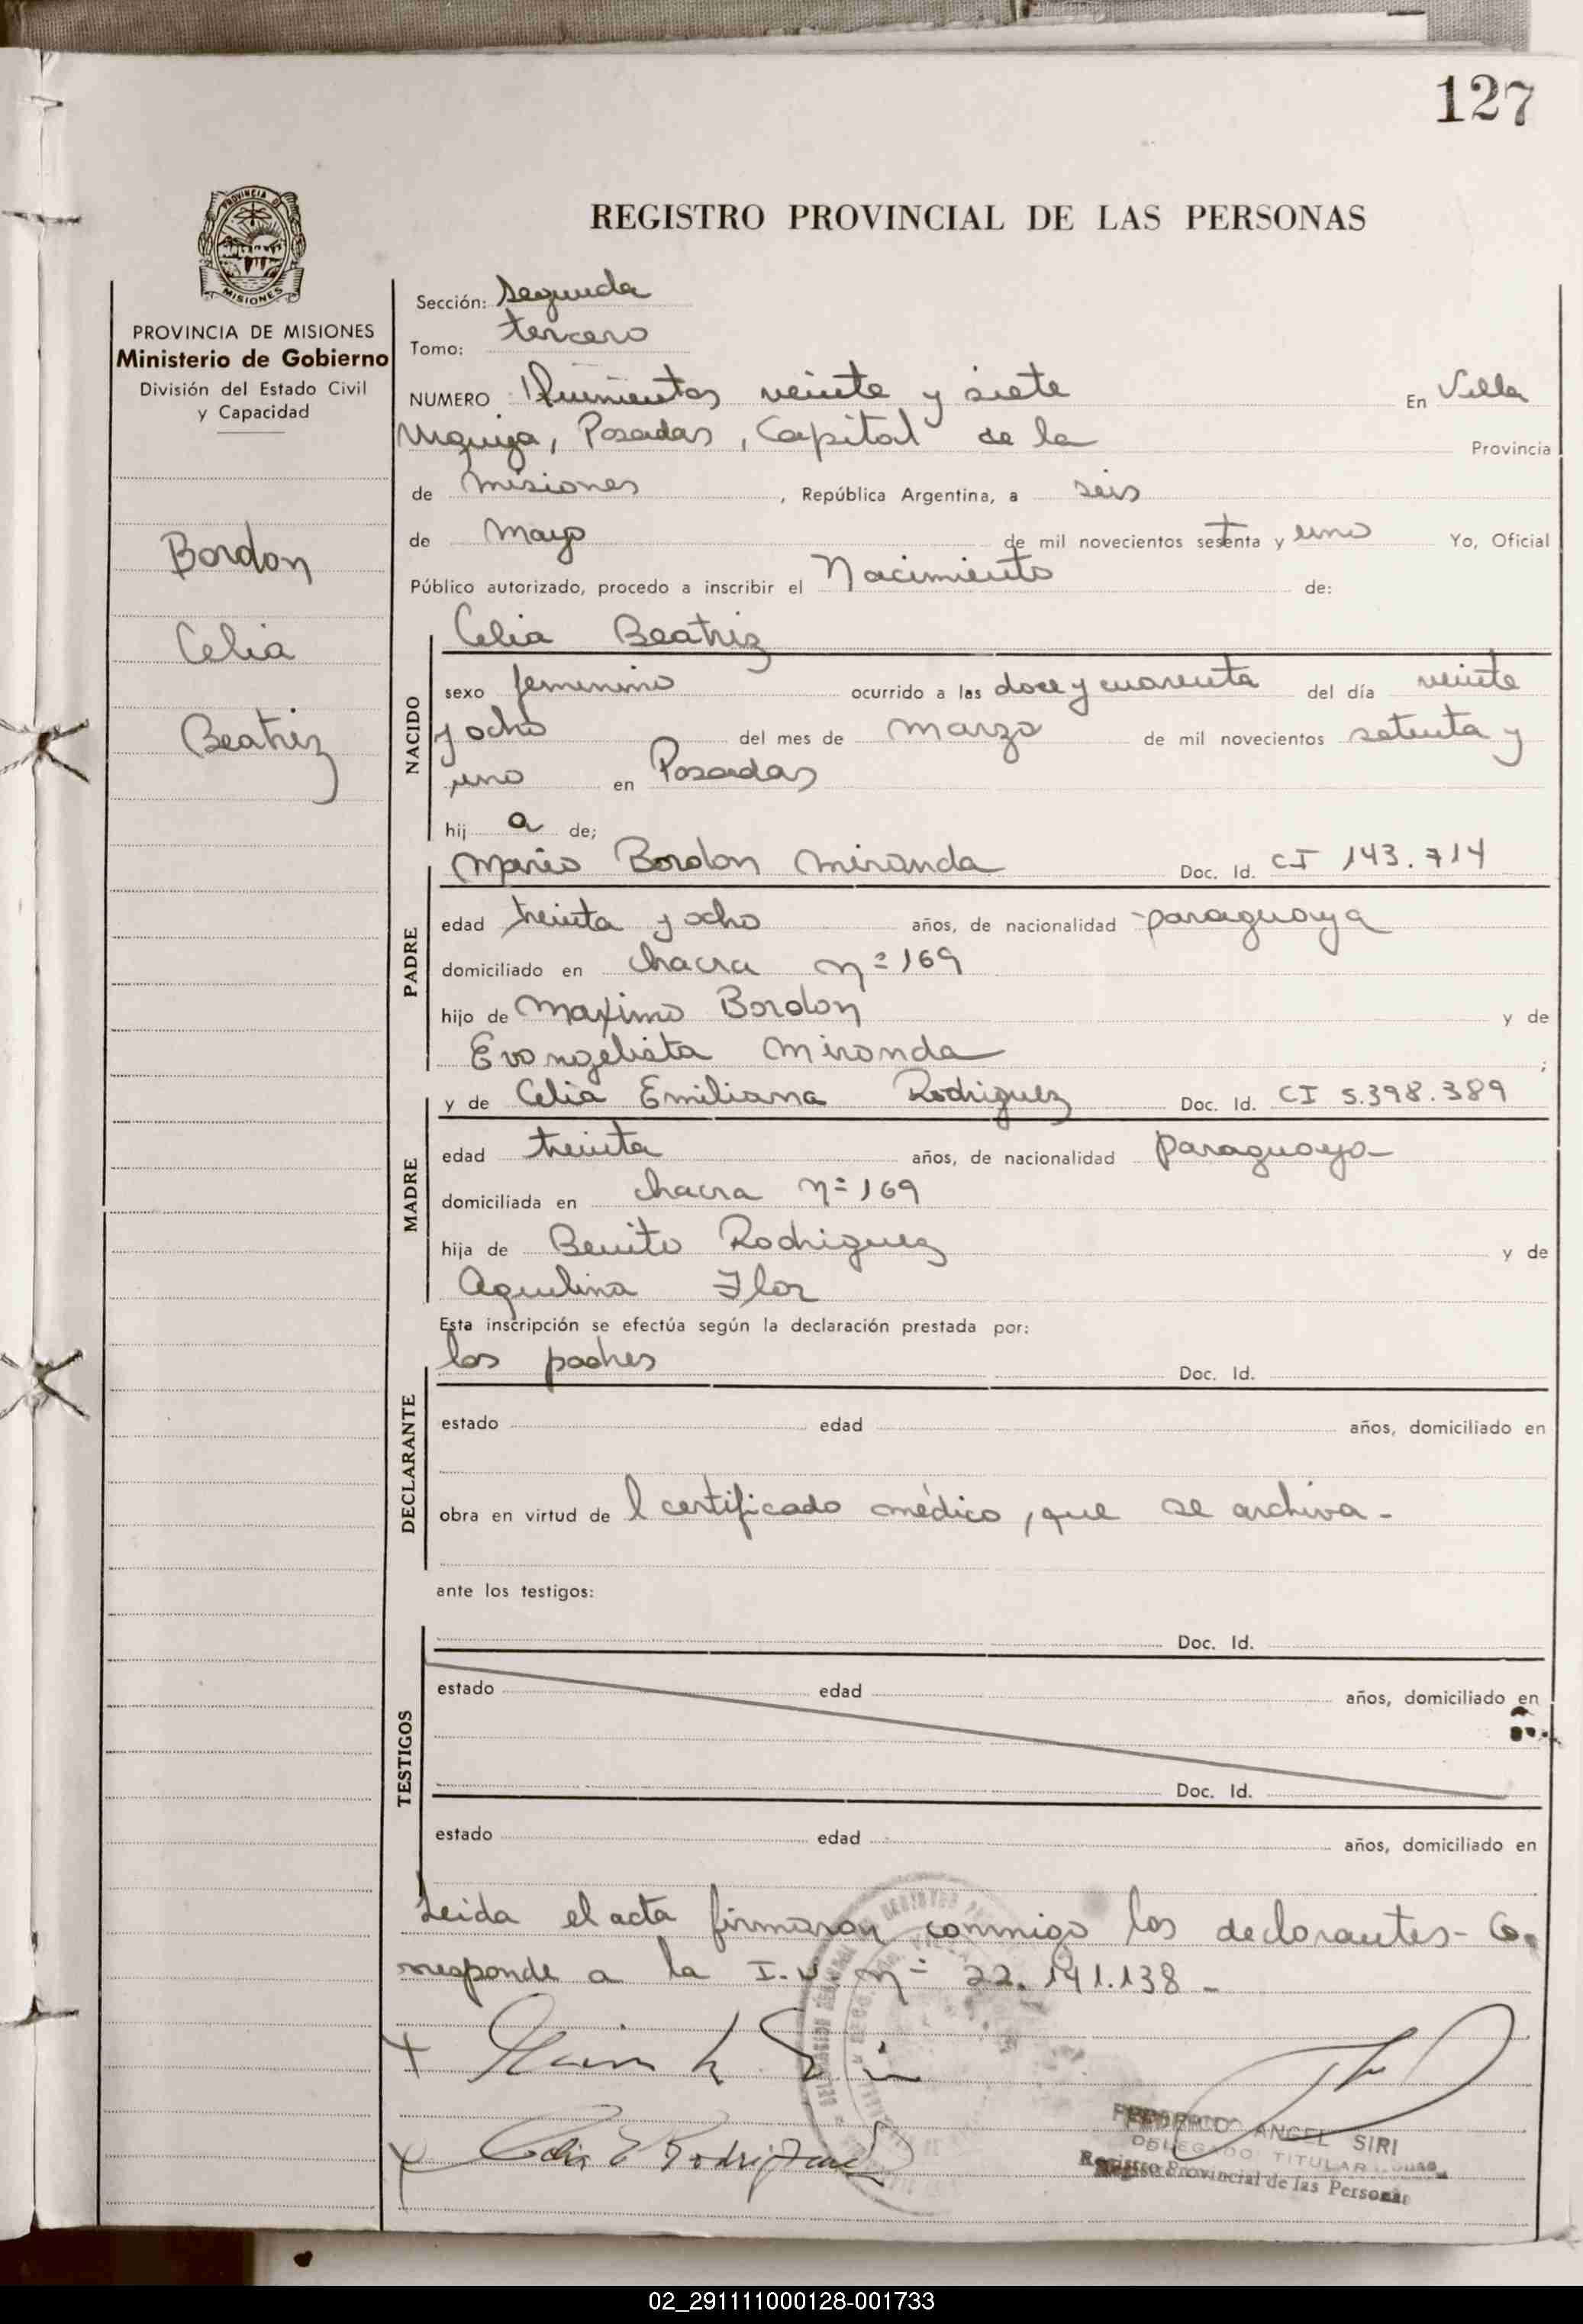 127
PROVINCIA DE
MISIONES
REGISTRO PROVINCIAL DE LAS PERSONAS
PROVINCIA DE MISIONES
Ministerio de Gobierno
División del Estado Civil
y Capacidad
Bordon
Celia
Beatriz
Sección: Segunda
Tomo: tercero
NUMERO Quinientos veinte y siete En Villa
Urquiza, Posadas, Capital de la Provincia
de Misiones, República Argentina, a seis
de Mayo de mil novecientos setenta y uno Yo, Oficial
Público autorizado, procedo a inscribir el Nacimiento de:
NACIDO
Celia Beatriz
sexo femenino ocurrido a las doce y cuarenta del día veinte
y ocho del mes de marzo de mil novecientos setenta y
uno en Posadas
hij a de;
PADRE
Mario Bordon Miranda Doc. Id. CI 143.714
edad treinta y ocho años, de nacionalidad paraguaya
domiciliado en chacra nº 169
hijo de Maximo Bordon y de
Evangelista Miranda ;
MADRE
y de Celia Emiliana Rodriguez Doc. Id. CI 5.398.389
edad treinta años, de nacionalidad paraguaya-
domiciliada en chacra nº 169
hija de Benito Rodriguez y de
Aquilina Flor
Esta inscripción se efectúa según la declaración prestada por:
DECLARANTE
los padres Doc. Id.
estado edad años, domiciliado en
obra en virtud de l certificado médico, que se archiva -
ante los testigos:
TESTIGOS
Doc. Id.
estado edad años, domiciliado en
Doc. Id.
estado edad años, domiciliado en
Leida el acta firmaron conmigo los declarantes- Co-
rresponde a la I.U. nº 22.141.138 -
Celia E Rodriguez
FEDERICO ANGEL SIRI
DELEGADO TITULAR
Registro Provincial de las Personas
02_291111000128-001733